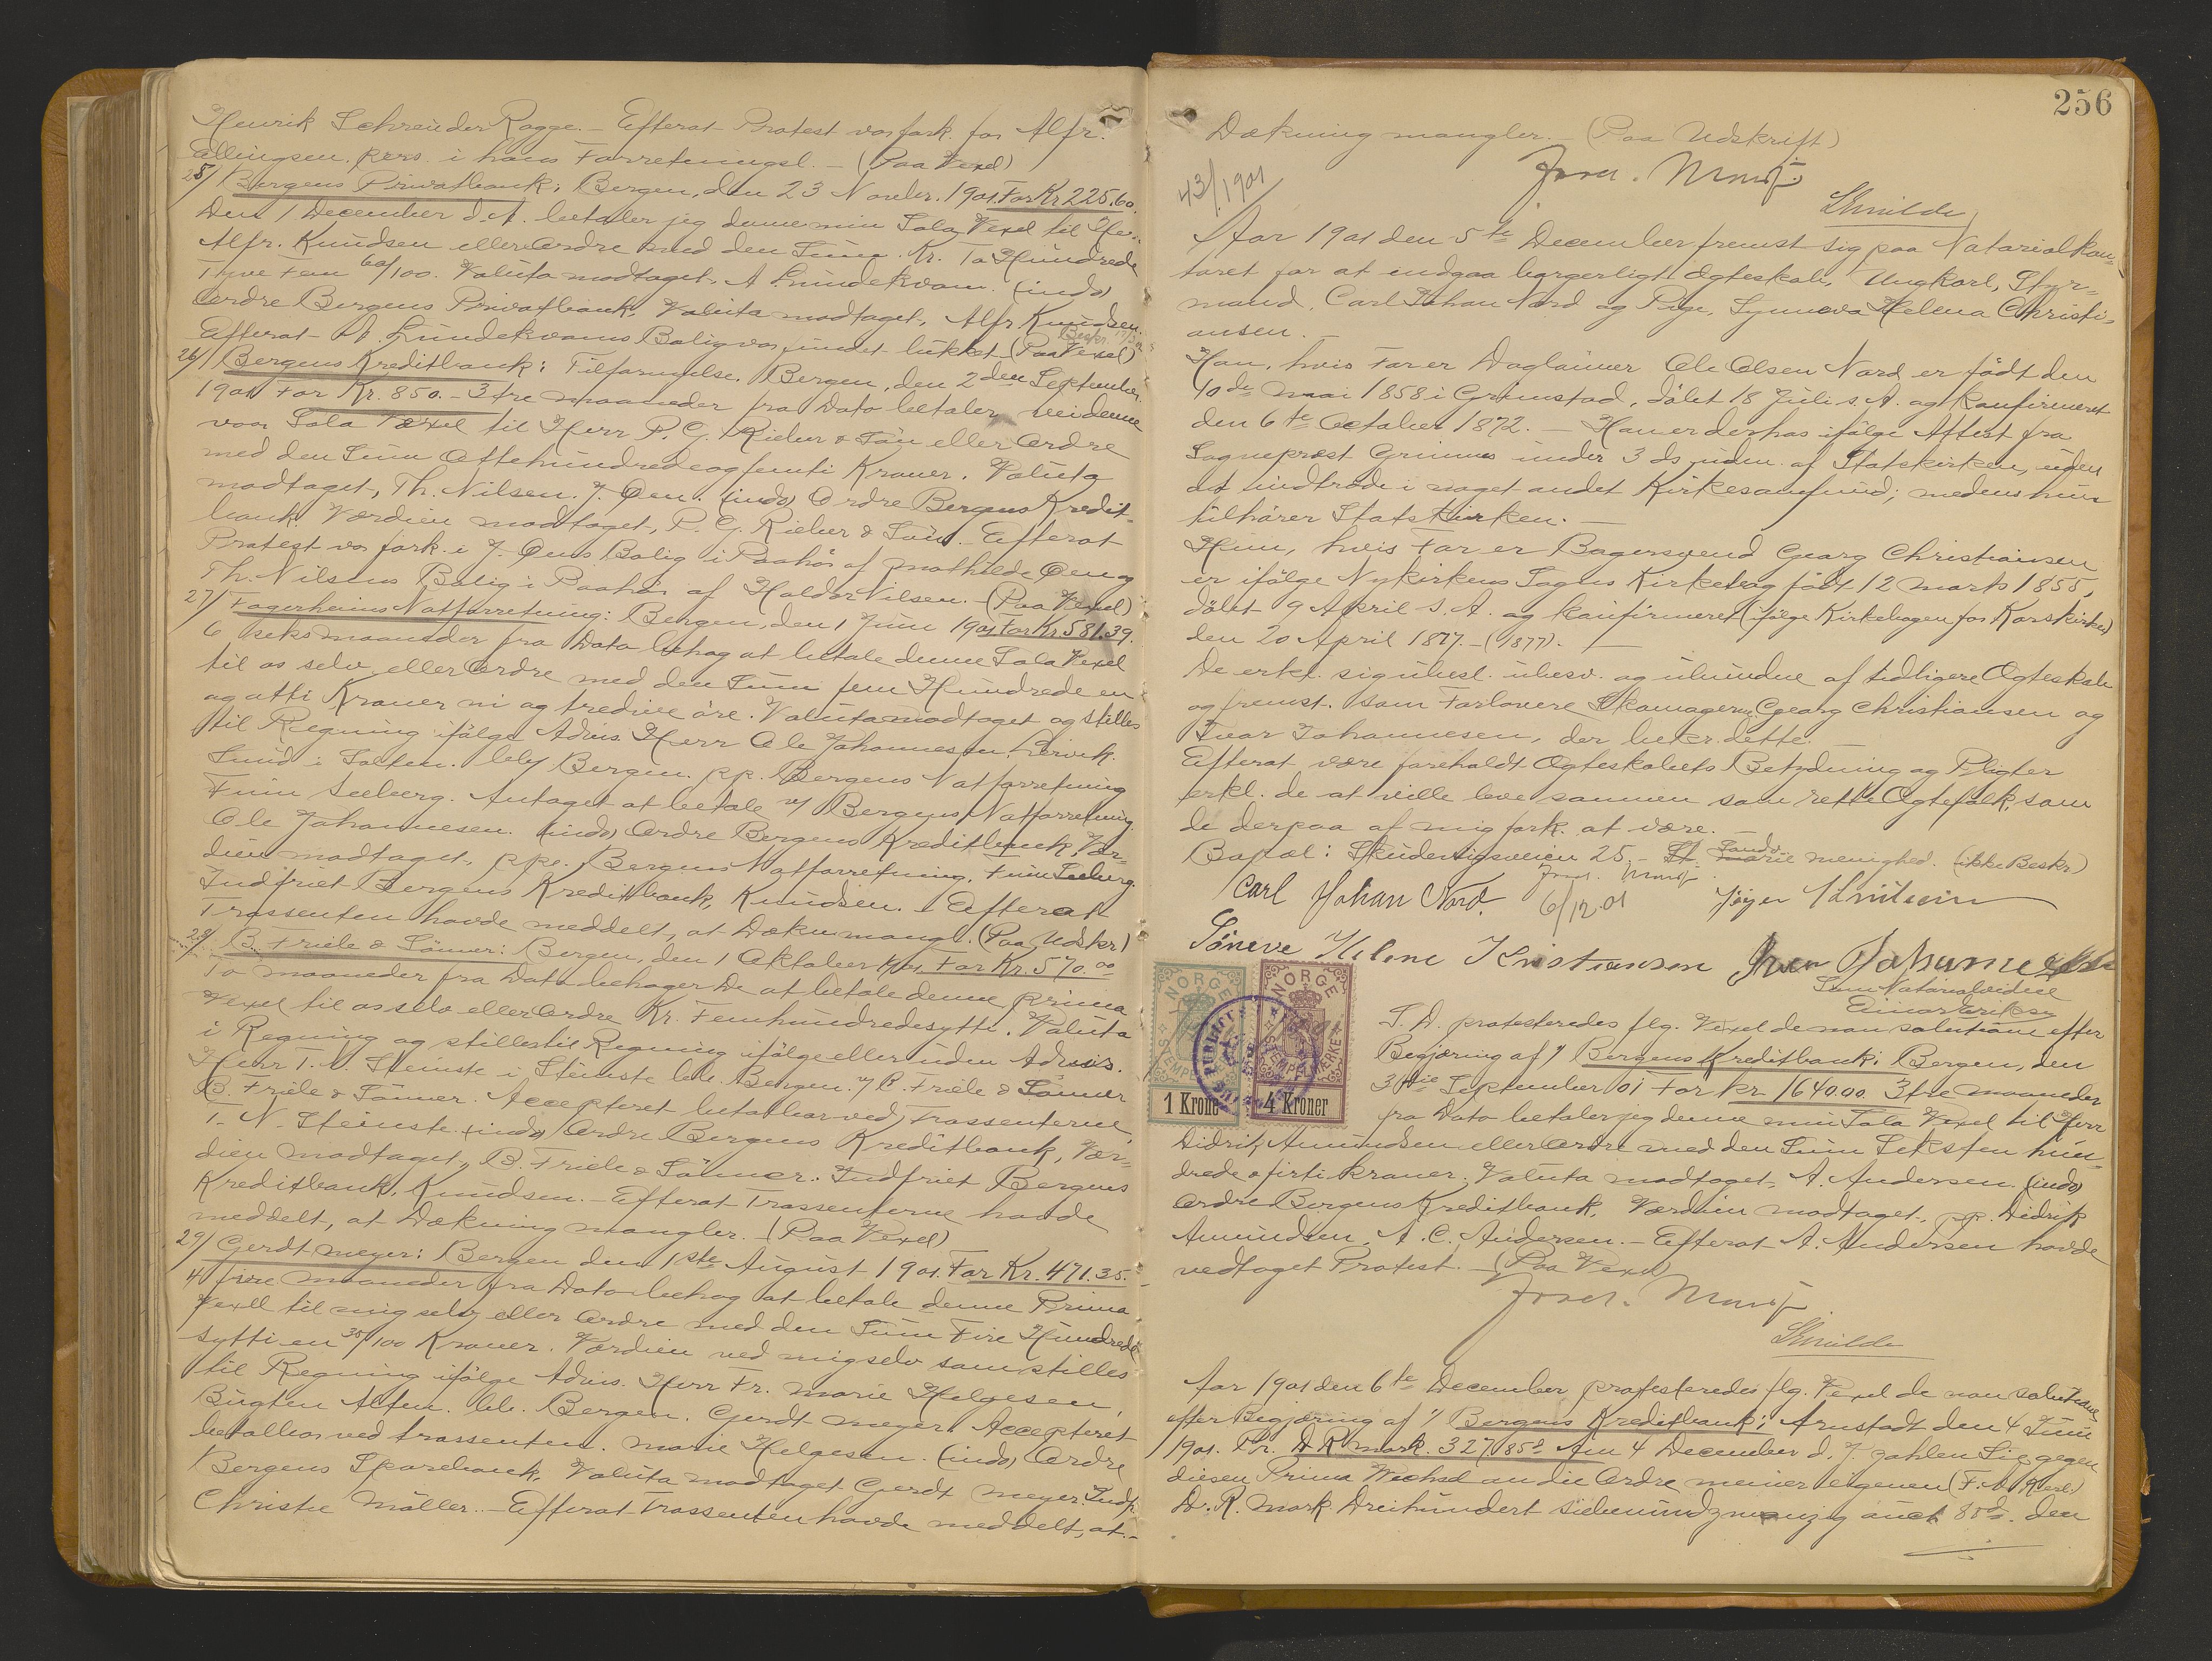 Henrik Schreuder Rogge. – Efterat Protest var fork. for Alfr.
Ellingsen pers. i hans Forretningsl. – (Paa Vexel)
25/ Bergens Privatbank: Bergen, den 23 Novbr. 1901. For Kr 225.60.
Den 1 December d. A. betaler jeg denne min Sola Vexel til Hrr.
Alfr. Knudsen eller Ordre med den Sum Kr. To Hundrede
Tyve Fem 60/100. Valuta modtaget. A Lundekvam. (indo)
Ordre Bergens Privatbank, Valuta modtaget, Alfr Knudsen.
Efterat A. Lundekvams Bolig var fundet lukket (Paa Vexel)
26/ Bergens Kreditbank: Tilfornyelse. Bergen, den 2den September
1901 For Kr. 850. – 3 tre maaneder fra Dato betaler vi denne
voor Sola Vexel til Herr P. G. Rieber & Søn eller Ordre
med den Sum Ottehundredeogfemti Kroner. Valuta
modtaget, Th. Nilsen. J. Øen. (indo) Ordre Bergens Kredit-
bank. Værdien modtaget, P. G. Rieber & Søn. – Efterat
Protest var fork. i J. Øens Bolig i Paahør af Mathilde Øen og
Th. Nilsens Bolig i Paahør af Haldor Nilsen. – (Paa Vexel)
27/ Fagerheims Notforretning: Bergen, den 1 Juni 1901 For Kr 581.39.
6 seks maaneder fra Dato behag at betale denne Sola Vexel
til os selv eller Ordre med den Sum fem Hundrede en
og otti Kroner ni og tredive øre. Valuta modtaget og stilles
til Regning ifølge Advis. Herr Ole Johannesen Lervik.
Sund i Salten. bby Bergen. pp. Bergens Notforretning
Finn Seeberg. Antaget at betale v/ Bergens Notforretning.
Ole Johannesen. (indo) Ordre Bergens Kreditbank Vær-
dien modtaget, ppe. Bergens Notforretning. Finn Seeberg.
Indfriet Bergens Kreditbank, Knudsen. – Efterat
Trassenten havde meddelt, at Dækn. mangl. (Paa Udskr)
28/ B. Friele & Sønner: Bergen, den 1 Oktober 1901 For Kr. 570.00
To maaneder fra Dato behager De at betale denne prima
Vexel til os selv eller Ordre Kr. Femhundredesytti. Valuta
i Regning og stilles til Regning ifølge eller uden Advis.
Herr T. N. Steinste i Steinste bet. Bergen. p B. Friele & Sønner
B. Friele & Sønner. Accepteret betalbar ved Trassenterne,
T. N. Steinste. (indo) Ordre Bergens Kreditbank, Vær-
dien modtaget, B. Friele & Sønner. Indfriet Bergens
Kreditbank, Knudsen. – Efterat Trassenterne havde
meddelt, at Dækning mangler. – (Paa Vexel)
29/ Gerdt Meyer: Bergen den 1ste August 1901. For Kr. 471.35.
4 fire maaneder fra Dato behag at betale denne Prima
Vexel til mig selv eller Ordre med den Sum Fire Hundrede
sytti en 35/100 Kroner. Værdien ved mig selv som stilles
til Regning ifølge Advis. Herr Fr. Marie Helgesen,
Bugten Alten. bet. Bergen. Gerdt Meyer. Accepteret
betalbar ved trassenten. Marie Helgesen. (indo) Ordre
Bergens Sparebank, Valuta modtaget Gerdt Meyer. Indfr.
Christie Møller. – Efterat Trassenten havde meddelt, at
256
Dækning mangler. – (Paa Udskrift)
43/1901
Aar 1901 den 5te December fremst sig paa Notarialkon-
toret for at indgaa borgerligt Ægteskab, Ungkarl, Styr-
mand, Carl Johan Nord og Pige, Synneva Helena Christi-
ansen.
Han, hvis Far er Dagleiner Ole Olsen Nord er født den
10de Mai 1858 i Grimstad, døbt 18 Juli s. A. og konfirmeret
den 6te October 1872. – Han er derhos ifølge Attest fra
Sogneprest Grimnes under 3 ds. udm. af Statskirken, uden
at indtræde i noget andet Kirkesamfund; medens hun
tilhører Statskirken. –
Hun, hvis Far er Bagersvend Georg Christiansen
er ifølge Nykirkens Sogns Kirkebog født 12 Marts 1855,
døbt 9 April s. A. og konfirmeret (ifølge Kirkebogen for Korskirken)
den 20 April 1877. – (1877). –
De erkl. sig ubesl. ubesv. og ubundne af tidligere Ægteskab
og fremst. som Forlovere Skomager Georg Christiansen og
Ivar Johannesen, der bekr. dette.
Efterat være foreholdt Ægteskabets Betydning og Pligter
erkl. de at ville leve sammen som rette Ægtefolk, som
de derpaa af mig fork. at være.
Bopæl: Skudevigsveien 25. – St. Marie Sandv. menighed. (ikke Beskr)
Carl Johan Nord. 6/12.01
Søneve Helene Kristiansen Iver Johannesen
Som Notarialvidne
Einar Eriksen
NORGE STEMPELMÆRKE 1 Krone
NORGE STEMPELMÆRKE 4 Kroner
S. D. protesteredes flg. Vexel de non solutione efter
Begjæring af 1/ Bergens Kreditbank: Bergen, den
3die September 01 For kr 1640.00. 3 tre maaneder
fra Dato betaler jeg denne min Sola Vexel til Herr
Didrik Amundsen eller Ordre med den Sum Seksten hun-
drede & firti kroner. Valuta modtaget, A. Andersen. (indo)
Ordre Bergens Kreditbank, Værdien modtaget, pp. Didrik
Amundsen, A. C. Andersen. – Efterat A. Andersen havde
vedtaget Protest. – (Paa Vexel)
Aar 1901 den 6te December protesteredes flg. Vexel de non solutione
efter Begjæring af 1/ Bergens Kreditbank: Arnstadt den 4 Juni
1901. Fr. D R Mark. 327/85 Am 4 December d. J. zahlen Sie gegen
diesen Prima Wechsel an die Ordre meiner eigenen
D. R. Mark Dreihundert siebenundzwanzig auch 85 den